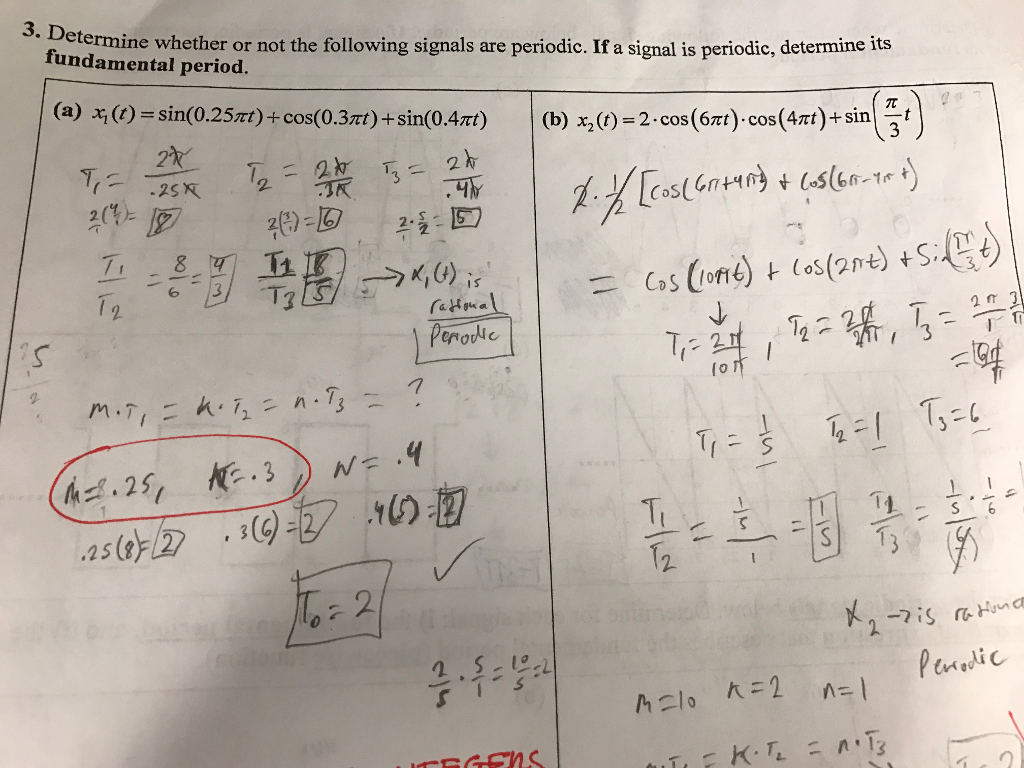 3. Determine whether or not the following signals are periodic. If a signal is periodic, determine its
fundamental period.
(a) x₁(t) = sin(0.25πt) + cos(0.3πt) + sin(0.4πt)
T₁ = 2π/.25π T₂ = 2π/.3π T₃ = 2π/.4π
2(4/1) = 8 2(3/1) = 6 2/1 · 5/2 = 5
T₁/T₂ = 8/6 = 4/3 T1/T3 8/5 → x₁(t) is
rational
Periodic
m·T₁ = k·T₂ = n·T₃ = ?
m = .25, K = .3, N = .4
.25(8) = 2 .3(6) = 2 .4(5) = 2
T₀ = 2
2/5 · 5/1 = 10/5 = 2
INTEGERS
(b) x₂(t) = 2·cos(6πt)·cos(4πt) + sin(π/3 t)
2 · 1/2 [cos(6π+4πt) + cos(6π-4πt)
= cos(10πt) + cos(2πt) + Sin(π/3 t)
↓
T₁ = 2π/10π, T₂ = 2π/2π, T₃ = 2π/1 3/π
= 6π/π
T₁ = 1/5 T₂ = 1 T₃ = 6
T₁/T₂ = 1/5/1 = 1/5 T1/T3 = 1/5 · 1/6 =
x₂ → is rational
Periodic
m = 10 k = 2 n = 1
m·T₁ = K·T₂ = n·T₃